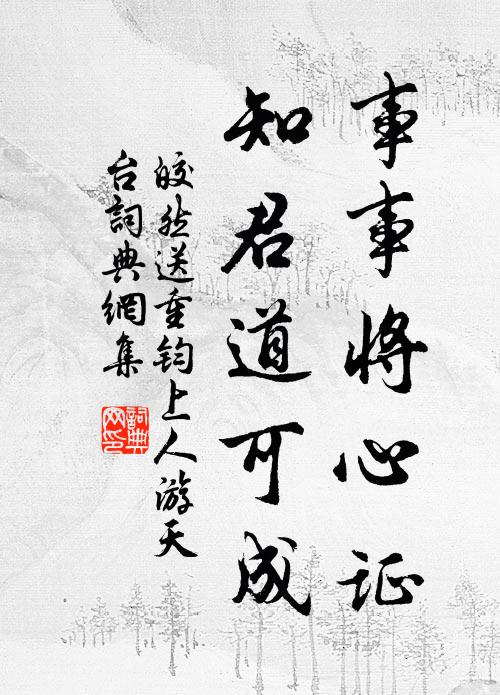 事事将心证
知君道可成
皎然送重钧上人游天
台詞典網集
詞典
网印